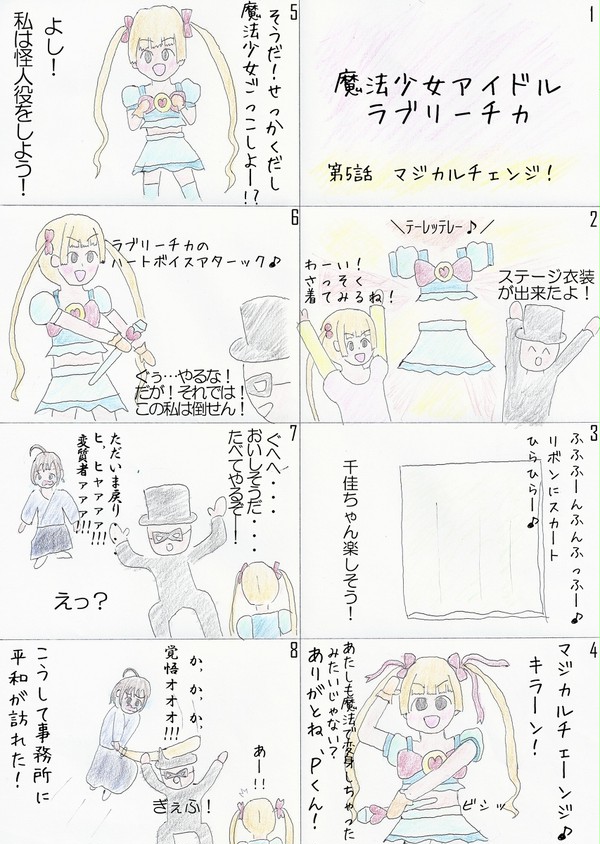 1
魔法少女アイドル
ラブリーチカ
第5話 マジカルチェンジ!
2
＼テーレッテレー♪／
わーい!
さっそく
着てみるね!
ステージ衣装
が出来たよ!
3
ふふふーんふんふんふっふー♪
リボンにスカート
ひらひらー♪
千佳ちゃん楽しそう!
4
マジカルチェーンジ♪
キラーン!
ビシッ
あたしも魔法で変身しちゃった
みたいじゃない?
ありがとね、Pくん!
5
そうだ!せっかくだし
魔法少女ごっこしよー!?
よし!
私は怪人役をしよう!
6
ラブリーチカの
ハートボイスアターック♪
ぐぅ…やるな!
だが!それでは!
この私は倒せん!
7
ぐへへ・・・
おいしそうだ・・・
たべてやるぞー!
ただいま戻り・・・
ヒ、ヒャァァァ!!!
変質者ァァァ!!!
えっ?
8
か、か、か、
覚悟オオオ!!!
あー!!
ぎぇふ!
こうして事務所に
平和が訪れた!